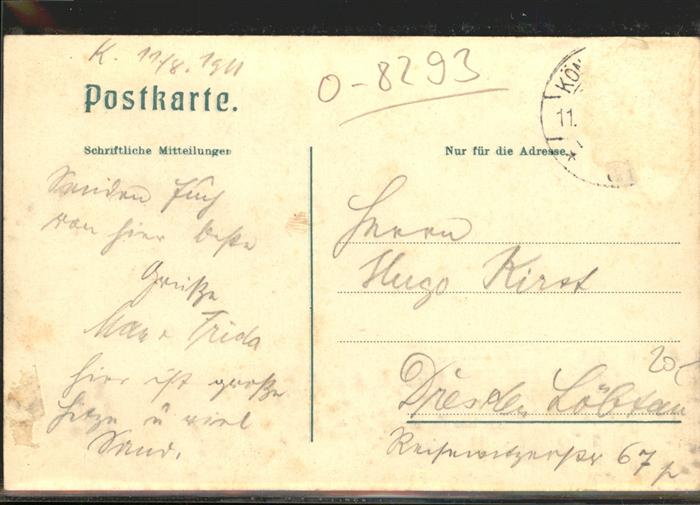 K. 11/8. 1911
0-8293
Postkarte.
KÖN
11.
Schriftliche Mitteilungen
Nur für die Adresse.
Senden Euch
von hier beste
Grüße
Max u Frida
hier ist große
Hitze u viel
Sand.
Herrn
Hugo Kirst
20-
Dresden Löbtau
Reisewitzerstr 67